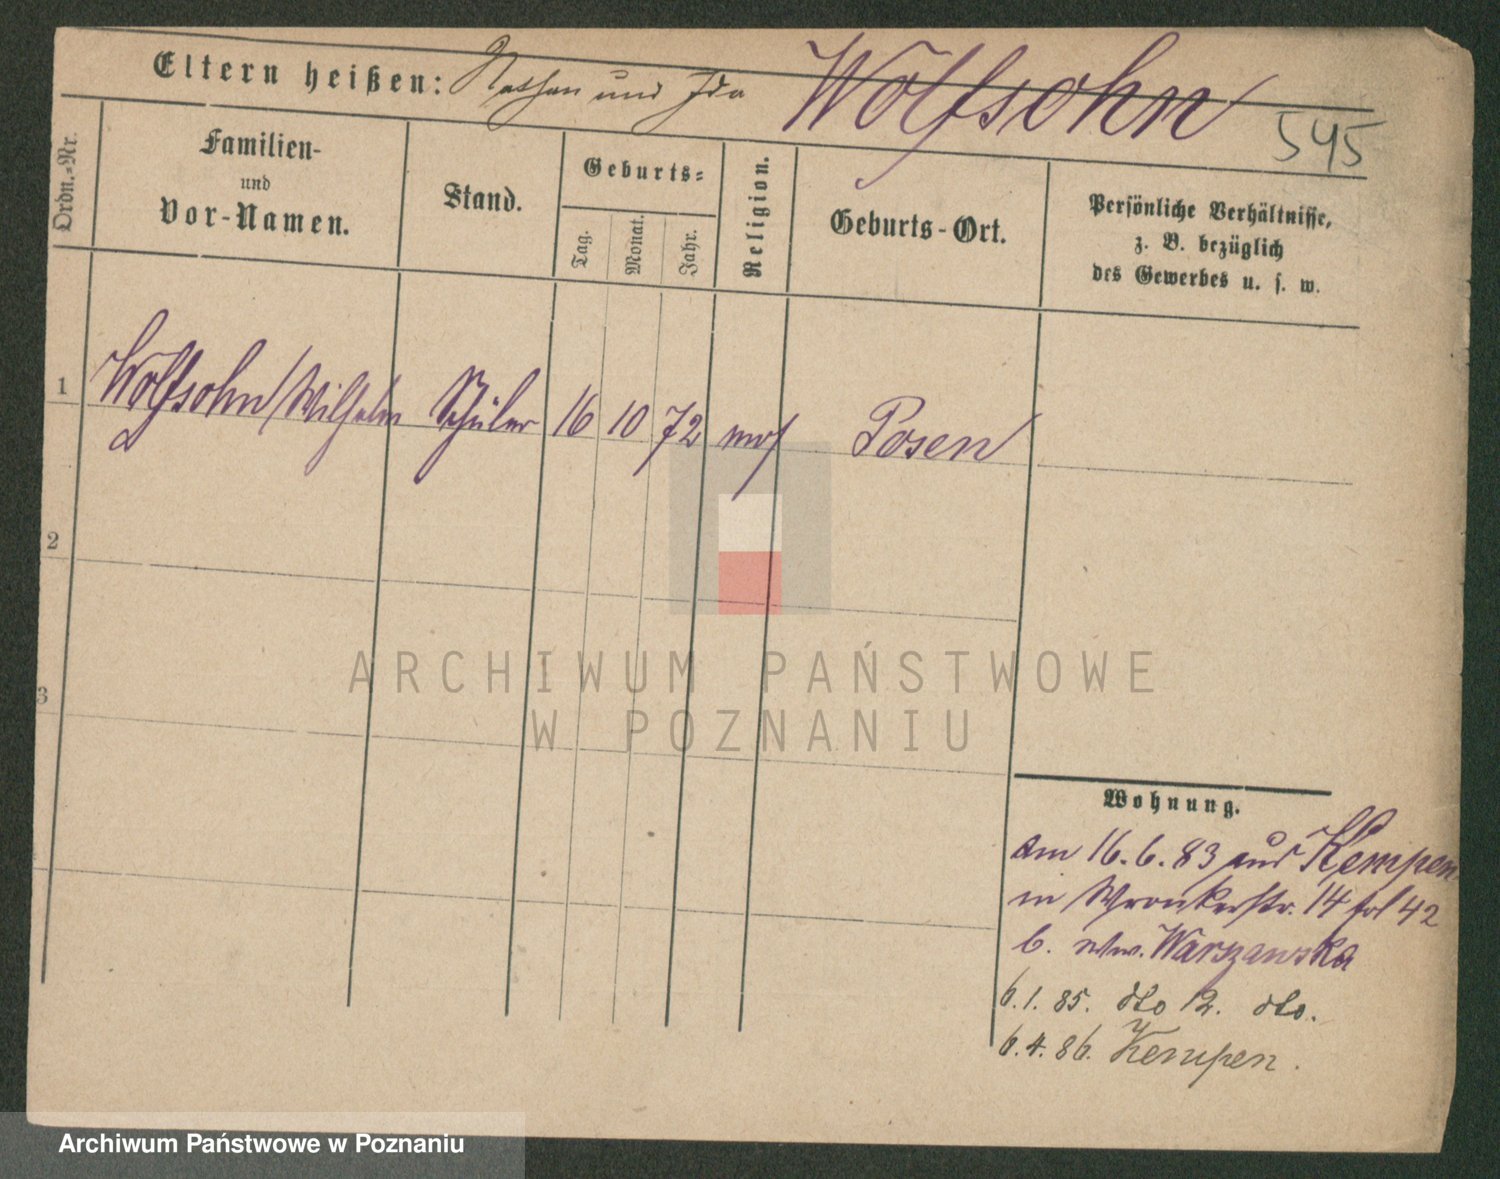 Eltern heißen: Nathan und Ida Wolfsohn
545
Ordn.-Nr.
Familien-
und
Vor-Namen.
Stand.
Geburts-
Tag.
Monat.
Jahr.
Religion.
Geburts-Ort.
Persönliche Verhältnisse,
z. B. bezüglich
des Gewerbes u. s. w.
1 Wolfsohn Wilhelm Schüler 16 10 72 mos Posen
2
3
ARCHIWUM PAŃSTWOWE
W POZNANIU
Wohnung.
am 16.6.83 aus Kempen
in Wronkerstr. 14 fol 42
b. Warszawska
6.1.85. dto 12. dto.
6.4.86. Kempen.
Archiwum Państwowe w Poznaniu